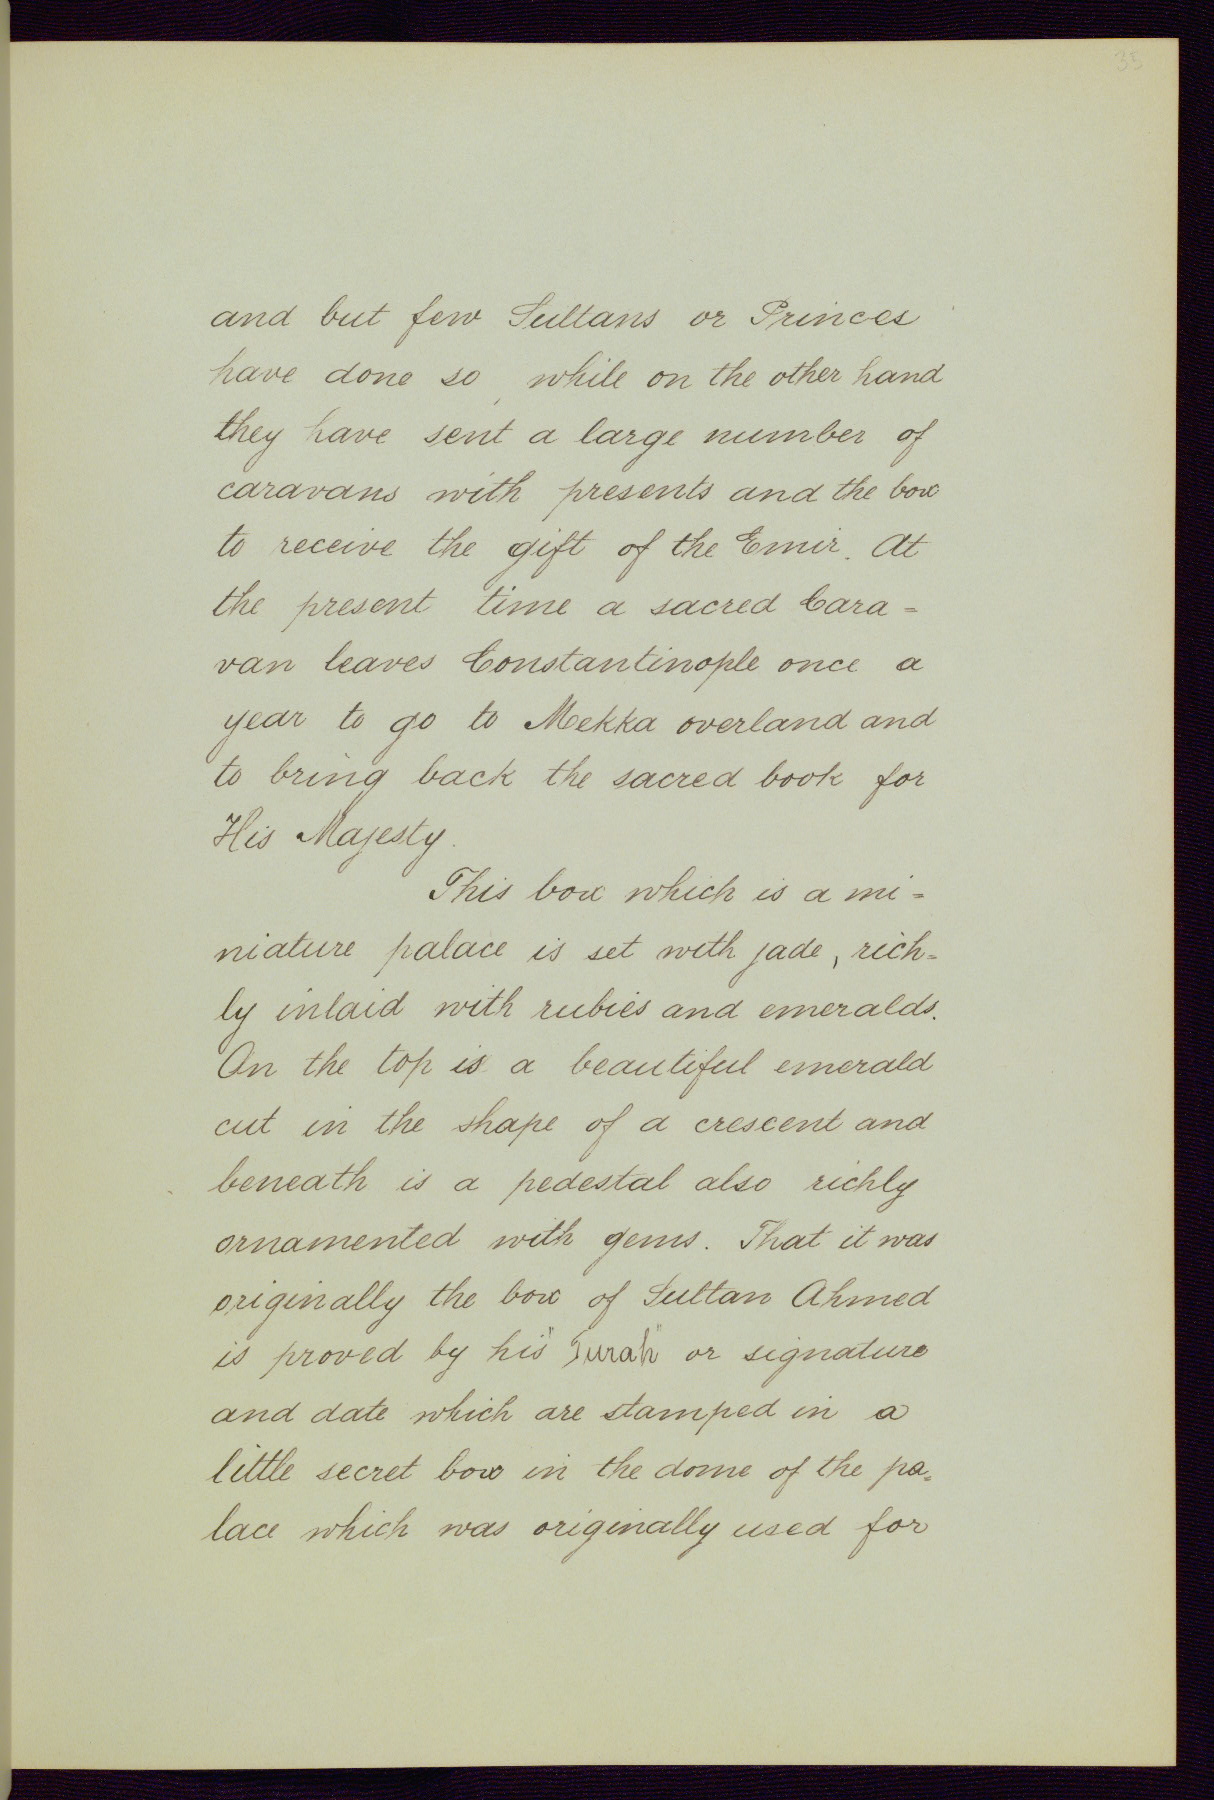 35
and but few Sultans or Princes
have done so, while on the other hand
they have sent a large number of
caravans with presents and the box
to receive the gift of the Emir. At
the present time a sacred Cara=
van leaves Constantinople once a
year to go to Mekka overland and
to bring back the sacred book for
His Majesty.
This box which is a mi=
niature palace is set with jade, rich=
ly inlaid with rubies and emeralds.
On the top is a beautiful emerald
cut in the shape of a crescent and
beneath is a pedestal also richly
ornamented with gems. That it was
originally the box of Sultan Ahmed
is proved by his "Turah" or signature
and date which are stamped in a
little secret box in the dome of the pa=
lace which was originally used for